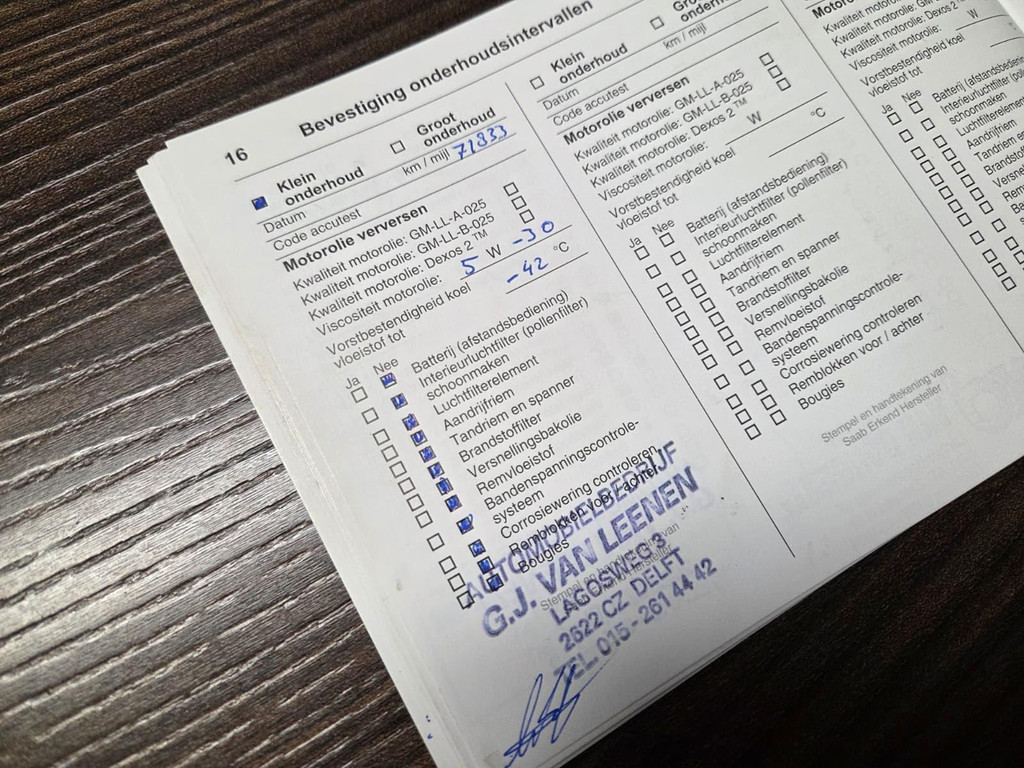 Bevestiging onderhoudsintervallen
16
Klein onderhoud
Groot onderhoud
Datum
km / mijl 71833
Code accutest
Motorolie verversen
Kwaliteit motorolie: GM-LL-A-025
Kwaliteit motorolie: GM-LL-B-025
Kwaliteit motorolie: Dexos 2™
Viscositeit motorolie: 5 W -30
Vorstbestendigheid koel
vloeistof tot -42 °C
Ja Nee
Batterij (afstandsbediening)
Interieurluchtfilter (pollenfilter)
schoonmaken
Luchtfilterelement
Aandrijfriem
Tandriem en spanner
Brandstoffilter
Versnellingsbakolie
Remvloeistof
Bandenspanningscontrole-
systeem
Corrosiewering controleren
Remblokken voor / achter
Bougies
Stempel en handtekening van
Saab Erkend Hersteller
AUTOMOBIELBEDRIJF
G.J. VAN LEENEN
LAGOSWEG 3
2622 CZ DELFT
TEL. 015 - 261 44 42
Klein
onderhoud
Groot
onderhoud
Datum
km / mijl
Code accutest
Motorolie verversen
Kwaliteit motorolie: GM-LL-A-025
Kwaliteit motorolie: GM-LL-B-025
Kwaliteit motorolie: Dexos 2™
Viscositeit motorolie: W
Vorstbestendigheid koel
vloeistof tot °C
Ja Nee
Batterij (afstandsbediening)
Interieurluchtfilter (pollenfilter)
schoonmaken
Luchtfilterelement
Aandrijfriem
Tandriem en spanner
Brandstoffilter
Versnellingsbakolie
Remvloeistof
Bandenspanningscontrole-
systeem
Corrosiewering controleren
Remblokken voor / achter
Bougies
Stempel en handtekening van
Saab Erkend Hersteller
Kwaliteit motorolie:
Kwaliteit motorolie: Dexos 2
Viscositeit motorolie:
Vorstbestendigheid koel
vloeistof tot
Ja Nee
Batterij
Interieurluchtfilter
schoonmaken
Luchtfilterelement
Aandrijfriem
Tandriem en